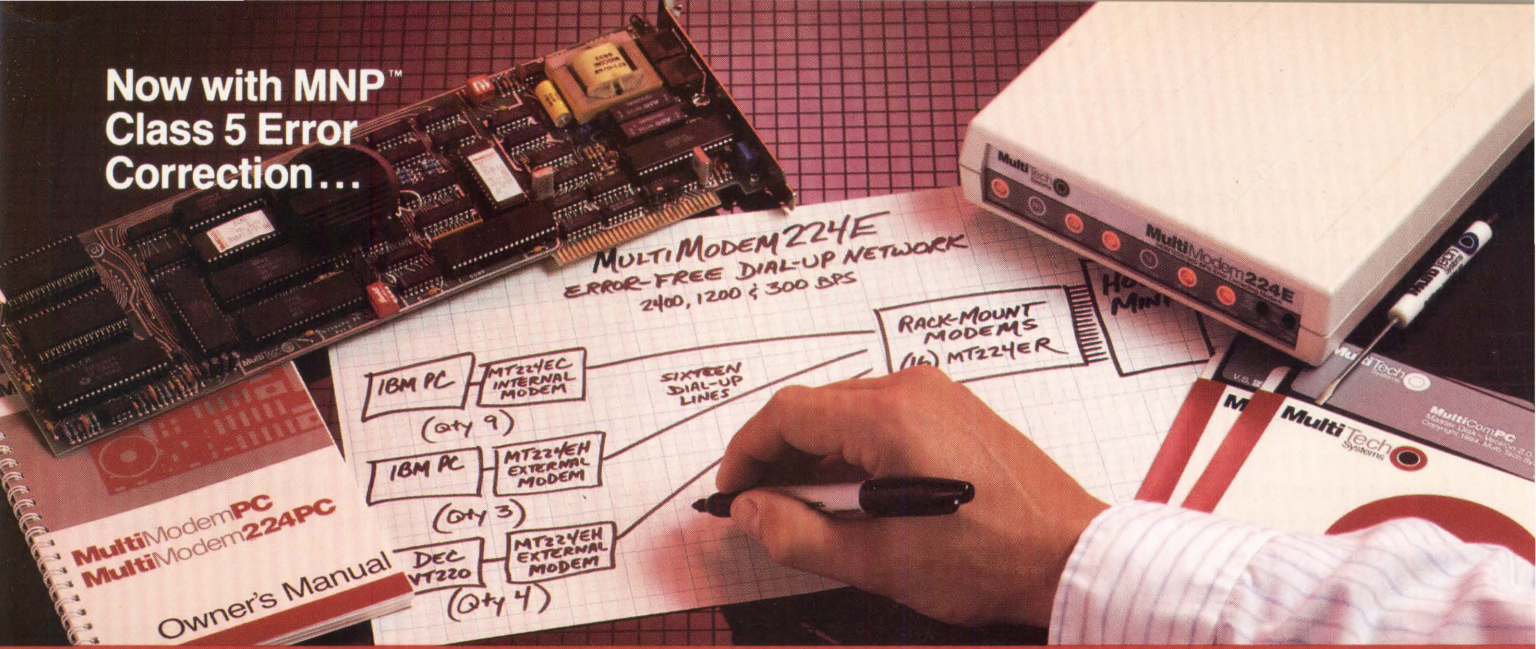 Now with MNP™
Class 5 Error
Correction...
MultiTech
MULTIMODEM 224E
ERROR-FREE DIAL-UP NETWORK
2400, 1200 & 300 BPS
IBM PC
MT224EC
INTERNAL
MODEM
(Qty 9)
IBM PC
MT224EH
EXTERNAL
MODEM
(Qty 3)
DEC
VT220
MT224EH
EXTERNAL
MODEM
(Qty 4)
SIXTEEN
DIAL-UP
LINES
RACK-MOUNT
MODEMS
(16) MT224ER
MINI
MultiTech
Systems
MultiModem224E
MultiModemPC
MultiModem224PC
Owner's Manual
V.S.
MultiTech
Systems
MultiComPC
Master Disk - Version 2.0
MultiTech
Systems